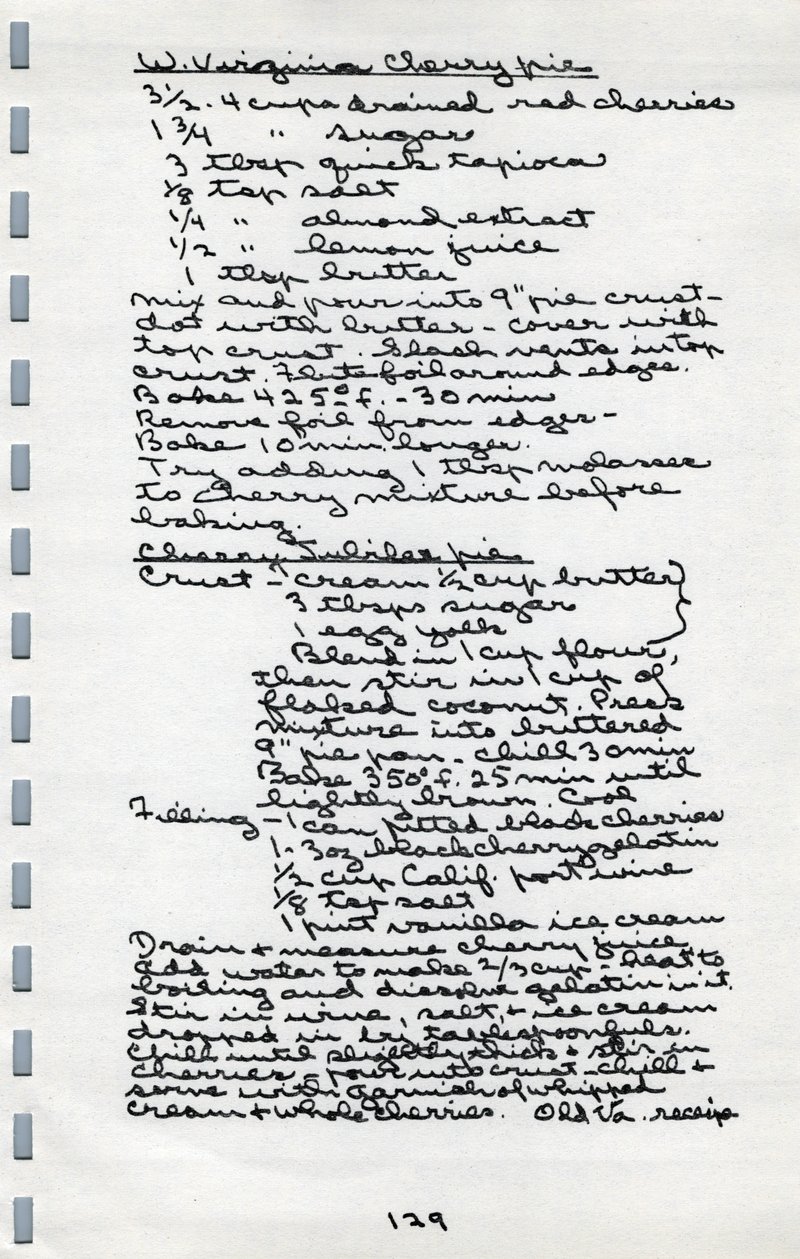 W. Virginia Cherry pie
3½-4 cups drained red cherries
1 3/4 " sugar
3 tbsp quick tapioca
1/8 tsp salt
1/4 " almond extract
1/2 " lemon juice
1 tbsp butter
Mix and pour into 9" pie crust-
dot with butter - cover with
top crust. Slash vents in top
crust. Flute foil around edges.
Bake 425° f. - 30 min
Remove foil from edges -
Bake 10 min. longer.
Try adding 1 tbsp molasses
to cherry mixture before
baking.
Cherry Jubilee pie
Crust - cream 1/2 cup butter
3 tbsps sugar
1 egg yolk
Blend in 1 cup flour,
then stir in 1 cup of
flaked coconut. Press
mixture into buttered
9" pie pan - chill 30 min
Bake 350° f. 25 min until
lightly brown. Cool
Filling - 1 can pitted black cherries
1 - 3 oz black cherry gelatin
1/2 cup Calif. port wine
1/8 tsp salt
1 pint vanilla ice cream
Drain & measure cherry juice
add water to make 2/3 cup - heat to
boiling and dissolve gelatin in it.
Stir in wine, salt, & ice cream
dropped in by tablespoonfuls.
Chill until slightly thick & stir in
cherries - pour into crust - chill &
serve with garnish of whipped
cream & whole cherries. Old Va. receipe
129